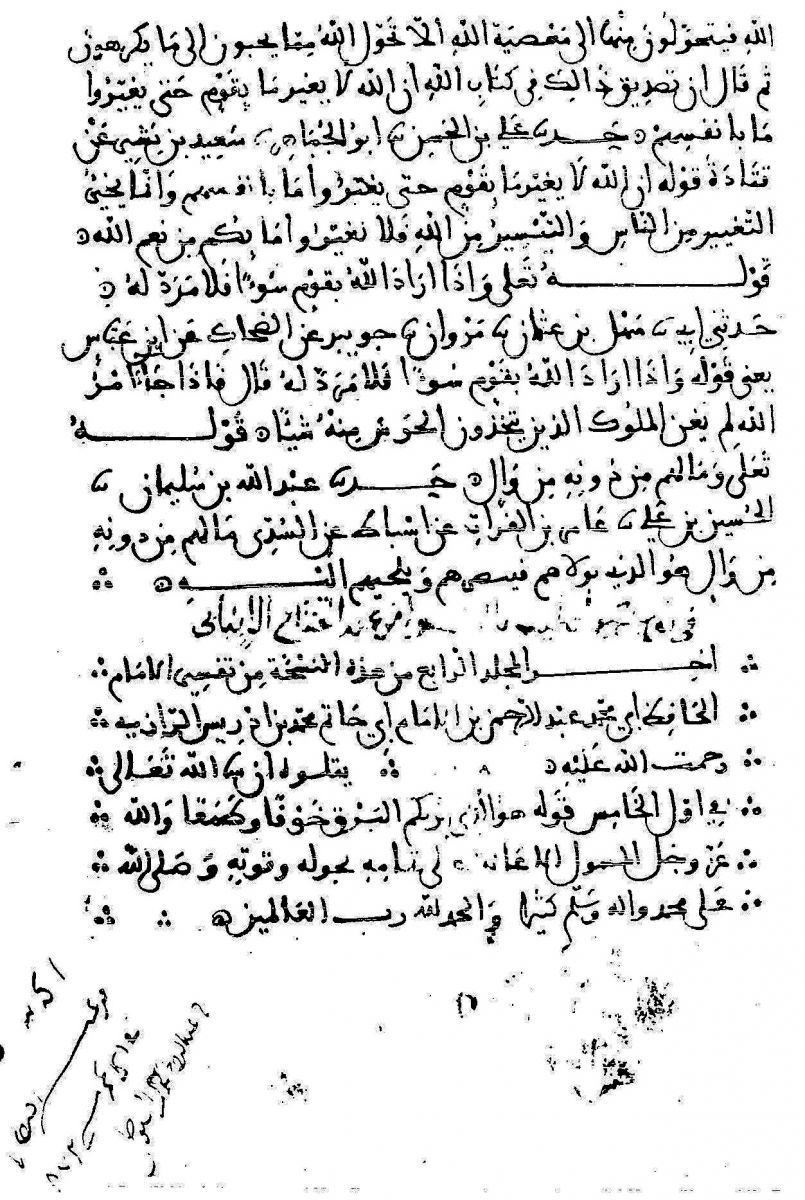 الله فيتحولون منها الى معصية الله الا تحول الله مما يحبون الى ما يكرهون
ثم قال ان تصديق ذالك في كتاب الله ان الله لا يغير ما بقوم حتى يغيروا
ما بانفسهم حدثنا علي بن الحسين ثنا ابو الجماهر ثنا سعيد بن بشير عن
قتادة قوله ان الله لا يغير ما بقوم حتى يغيروا ما بانفسهم وانما يجئ
التغيير من الناس والتيسير من الله فلا تغيروا ما بكم من نعم الله
قوله تعلى واذا اراد الله بقوم سوءا فلا مرد له
حدثني ابي ثنا سهل بن عثمان ثنا مروان ثنا جويبر عن الضحاك عن ابن عباس
يعني قوله واذا اراد الله بقوم سوءا فلا مرد له قال فاذا جاء امر
الله لم يغن الملوك الذين يتخذون الحرس منه شيئا قوله
تعلى وما لهم من دونه من وال حدثنا عبد الله بن سليمان ثنا
الحسين بن علي ثنا عامر بن الفرات عن اسباط عن السدي ما لهم من دونه
من وال هو الذي يولاهم فينصرهم ويلجيهم اليه
اخر المجلد الرابع من هذه النسخة من تفسير الامام
الحافظ ابي محمد عبد الرحمن بن الامام ابي حاتم محمد بن ادريس الرازي
رحمت الله عليه يتلوه ان شا الله تعالى
في اول الخامس قوله هو الذي يريكم البرق خوفا وطمعا والله
عز وجل المسول الاعانة على تمامه بحوله وقوته وصلى الله
على محمد واله وسلم كثيرا والحمد لله رب العالمين